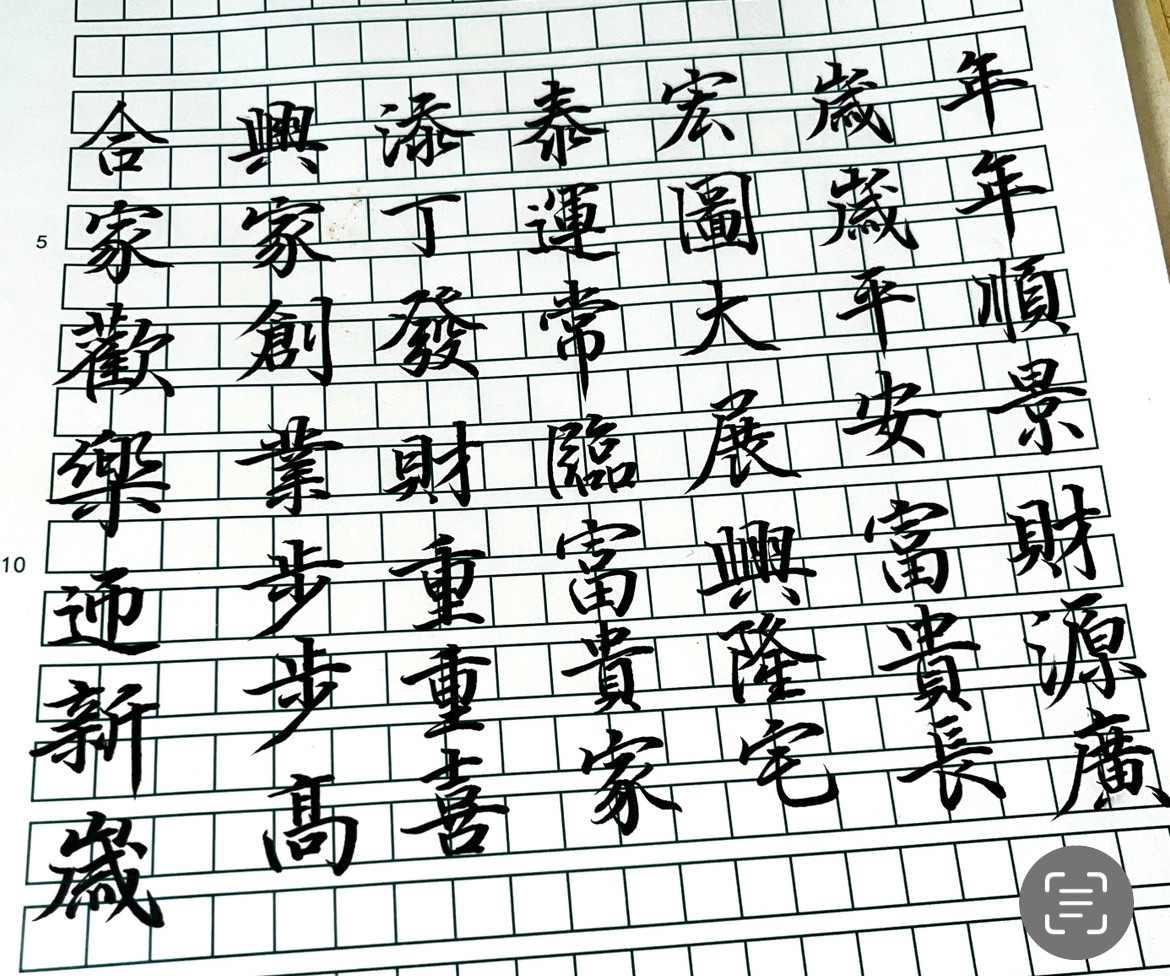 年年順景財源廣
歲歲平安富貴長
宏圖大展興隆宅
泰運常臨富貴家
添丁發財重重喜
興家創業步步高
合家歡樂迊新歲
5
10